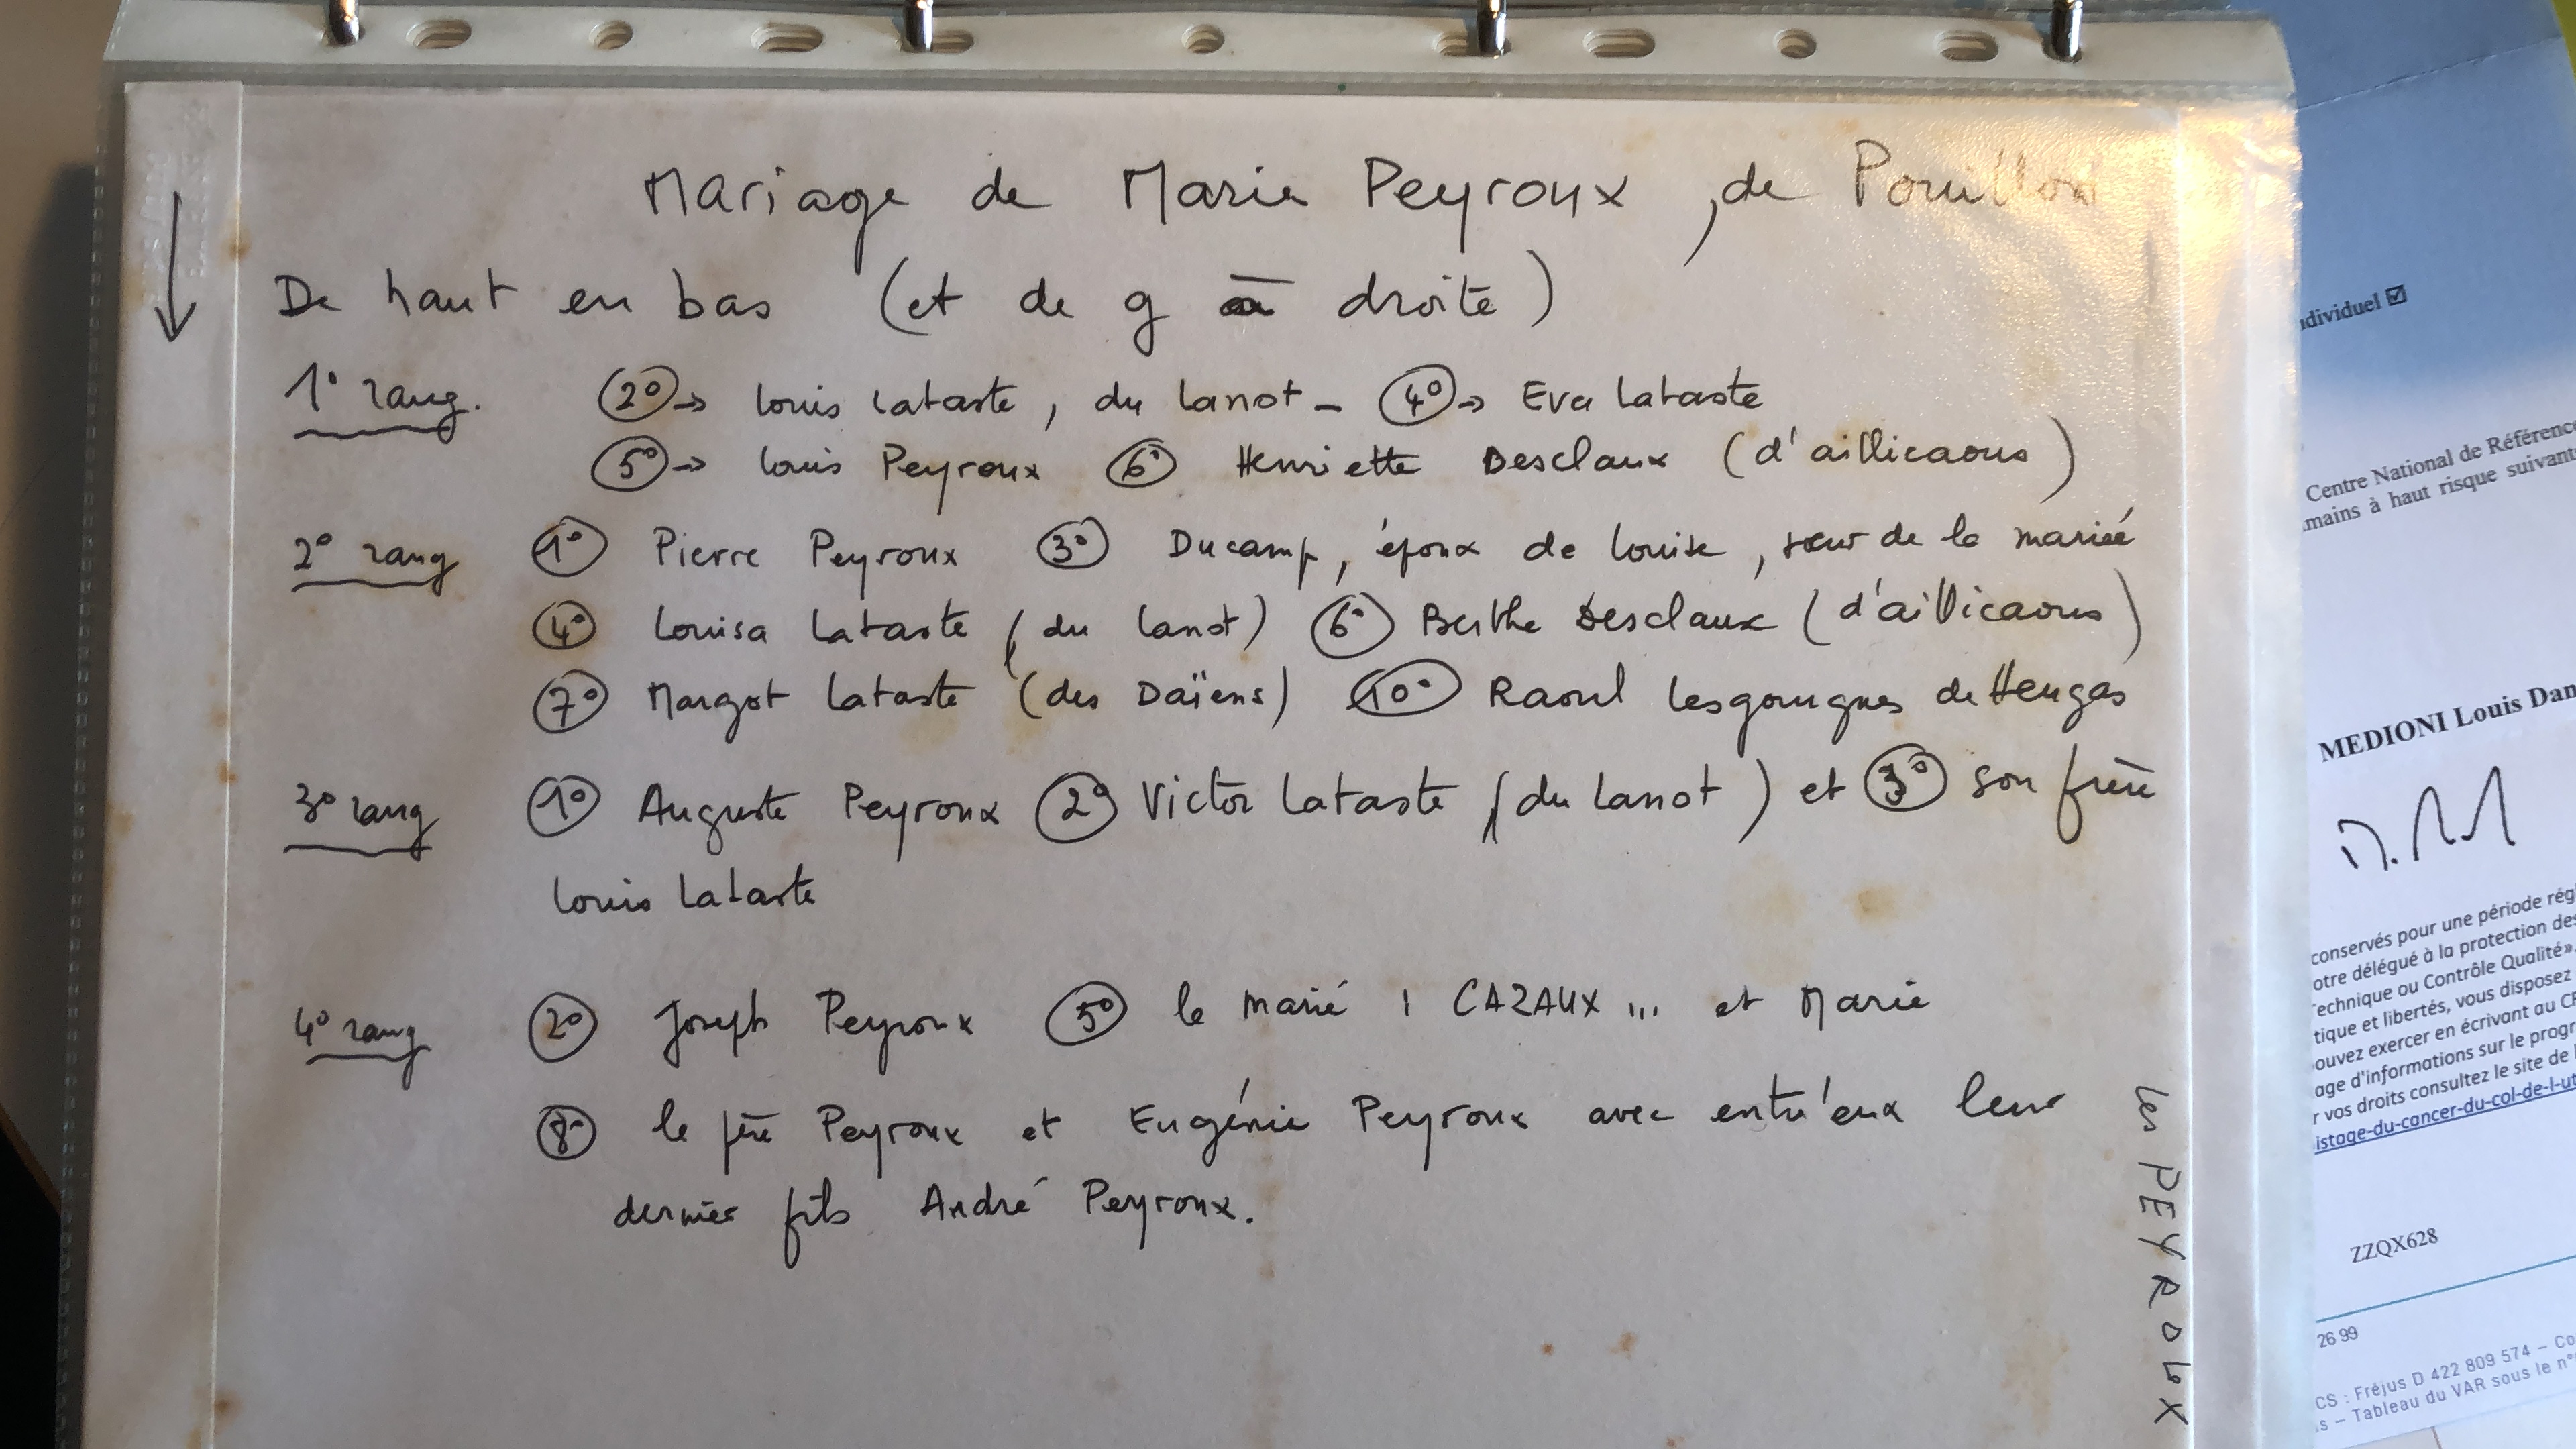 Mariage de Marie Peyroux, de Pouillon
De haut en bas (et de g à droite)
1° rang. 2° → Louis Lataste, du Lanot - 4° → Eva Lataste
5° → Louis Peyroux 6° Henriette Desclaux (d'aillicaous)
2° rang 1° Pierre Peyroux 3° Ducamp, époux de Louise, sœur de la mariée
4° Louisa Lataste (du Lanot) 6° Berthe Desclaux (d'aillicaous)
7° Margot Lataste (des Daïens) 10° Raoul Lesgourgues de Heugas
3° rang 1° Auguste Peyroux 2° Victor Lataste (du Lanot) et 3° son frère
Louis Lataste
4° rang 2° Joseph Peyroux 5° le marié : CAZAUX ... et Marie
8° le père Peyroux et Eugénie Peyroux avec entr'eux leur
dernier fils André Peyroux.
Les PEYROUX
dividuel ☑
Centre National de Référence
mains à haut risque suivant
MEDIONI Louis Dan
conservés pour une période rég
otre délégué à la protection des
echnique ou Contrôle Qualité»
tique et libertés, vous disposez
ouvez exercer en écrivant au CR
age d'informations sur le progr
r vos droits consultez le site de l
istage-du-cancer-du-col-de-l-ut
ZZQX628
26 99
CS : Fréjus D 422 809 574 – Co
s – Tableau du VAR sous le n°